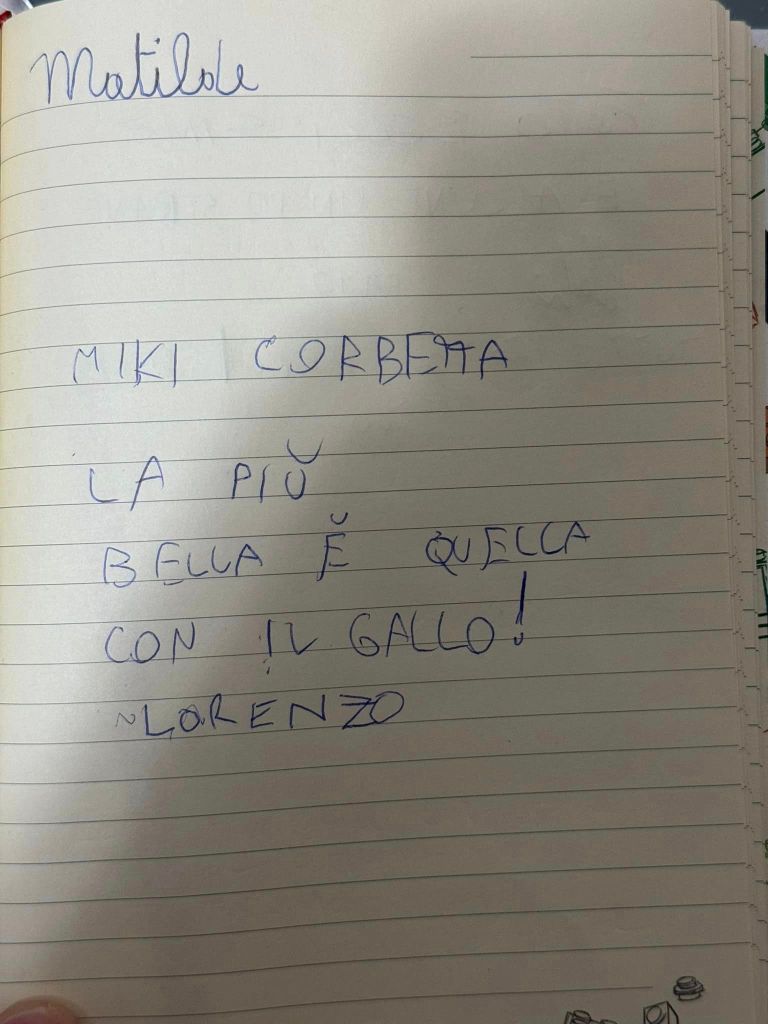 Matilde
MIKI CORBETTA
LA PIŬ
BELLA Ĕ QUELLA
CON IL GALLO!
~LORENZO